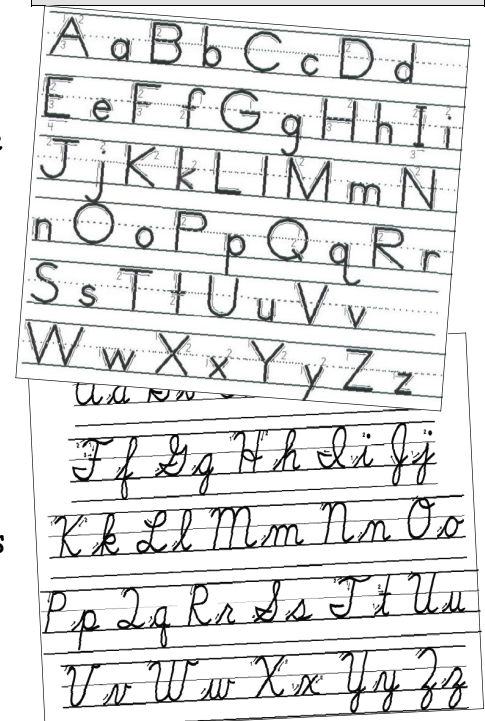 A a B b C c D d
E e F f G g H h I i
J j K k L l M m N
n O o P p Q q R r
S s T t U u V v
W w X x Y y Z z
F f G g H h I i J j
K k L l M m N n O o
P p Q q R r S s T t U u
V v W w X x Y y Z z